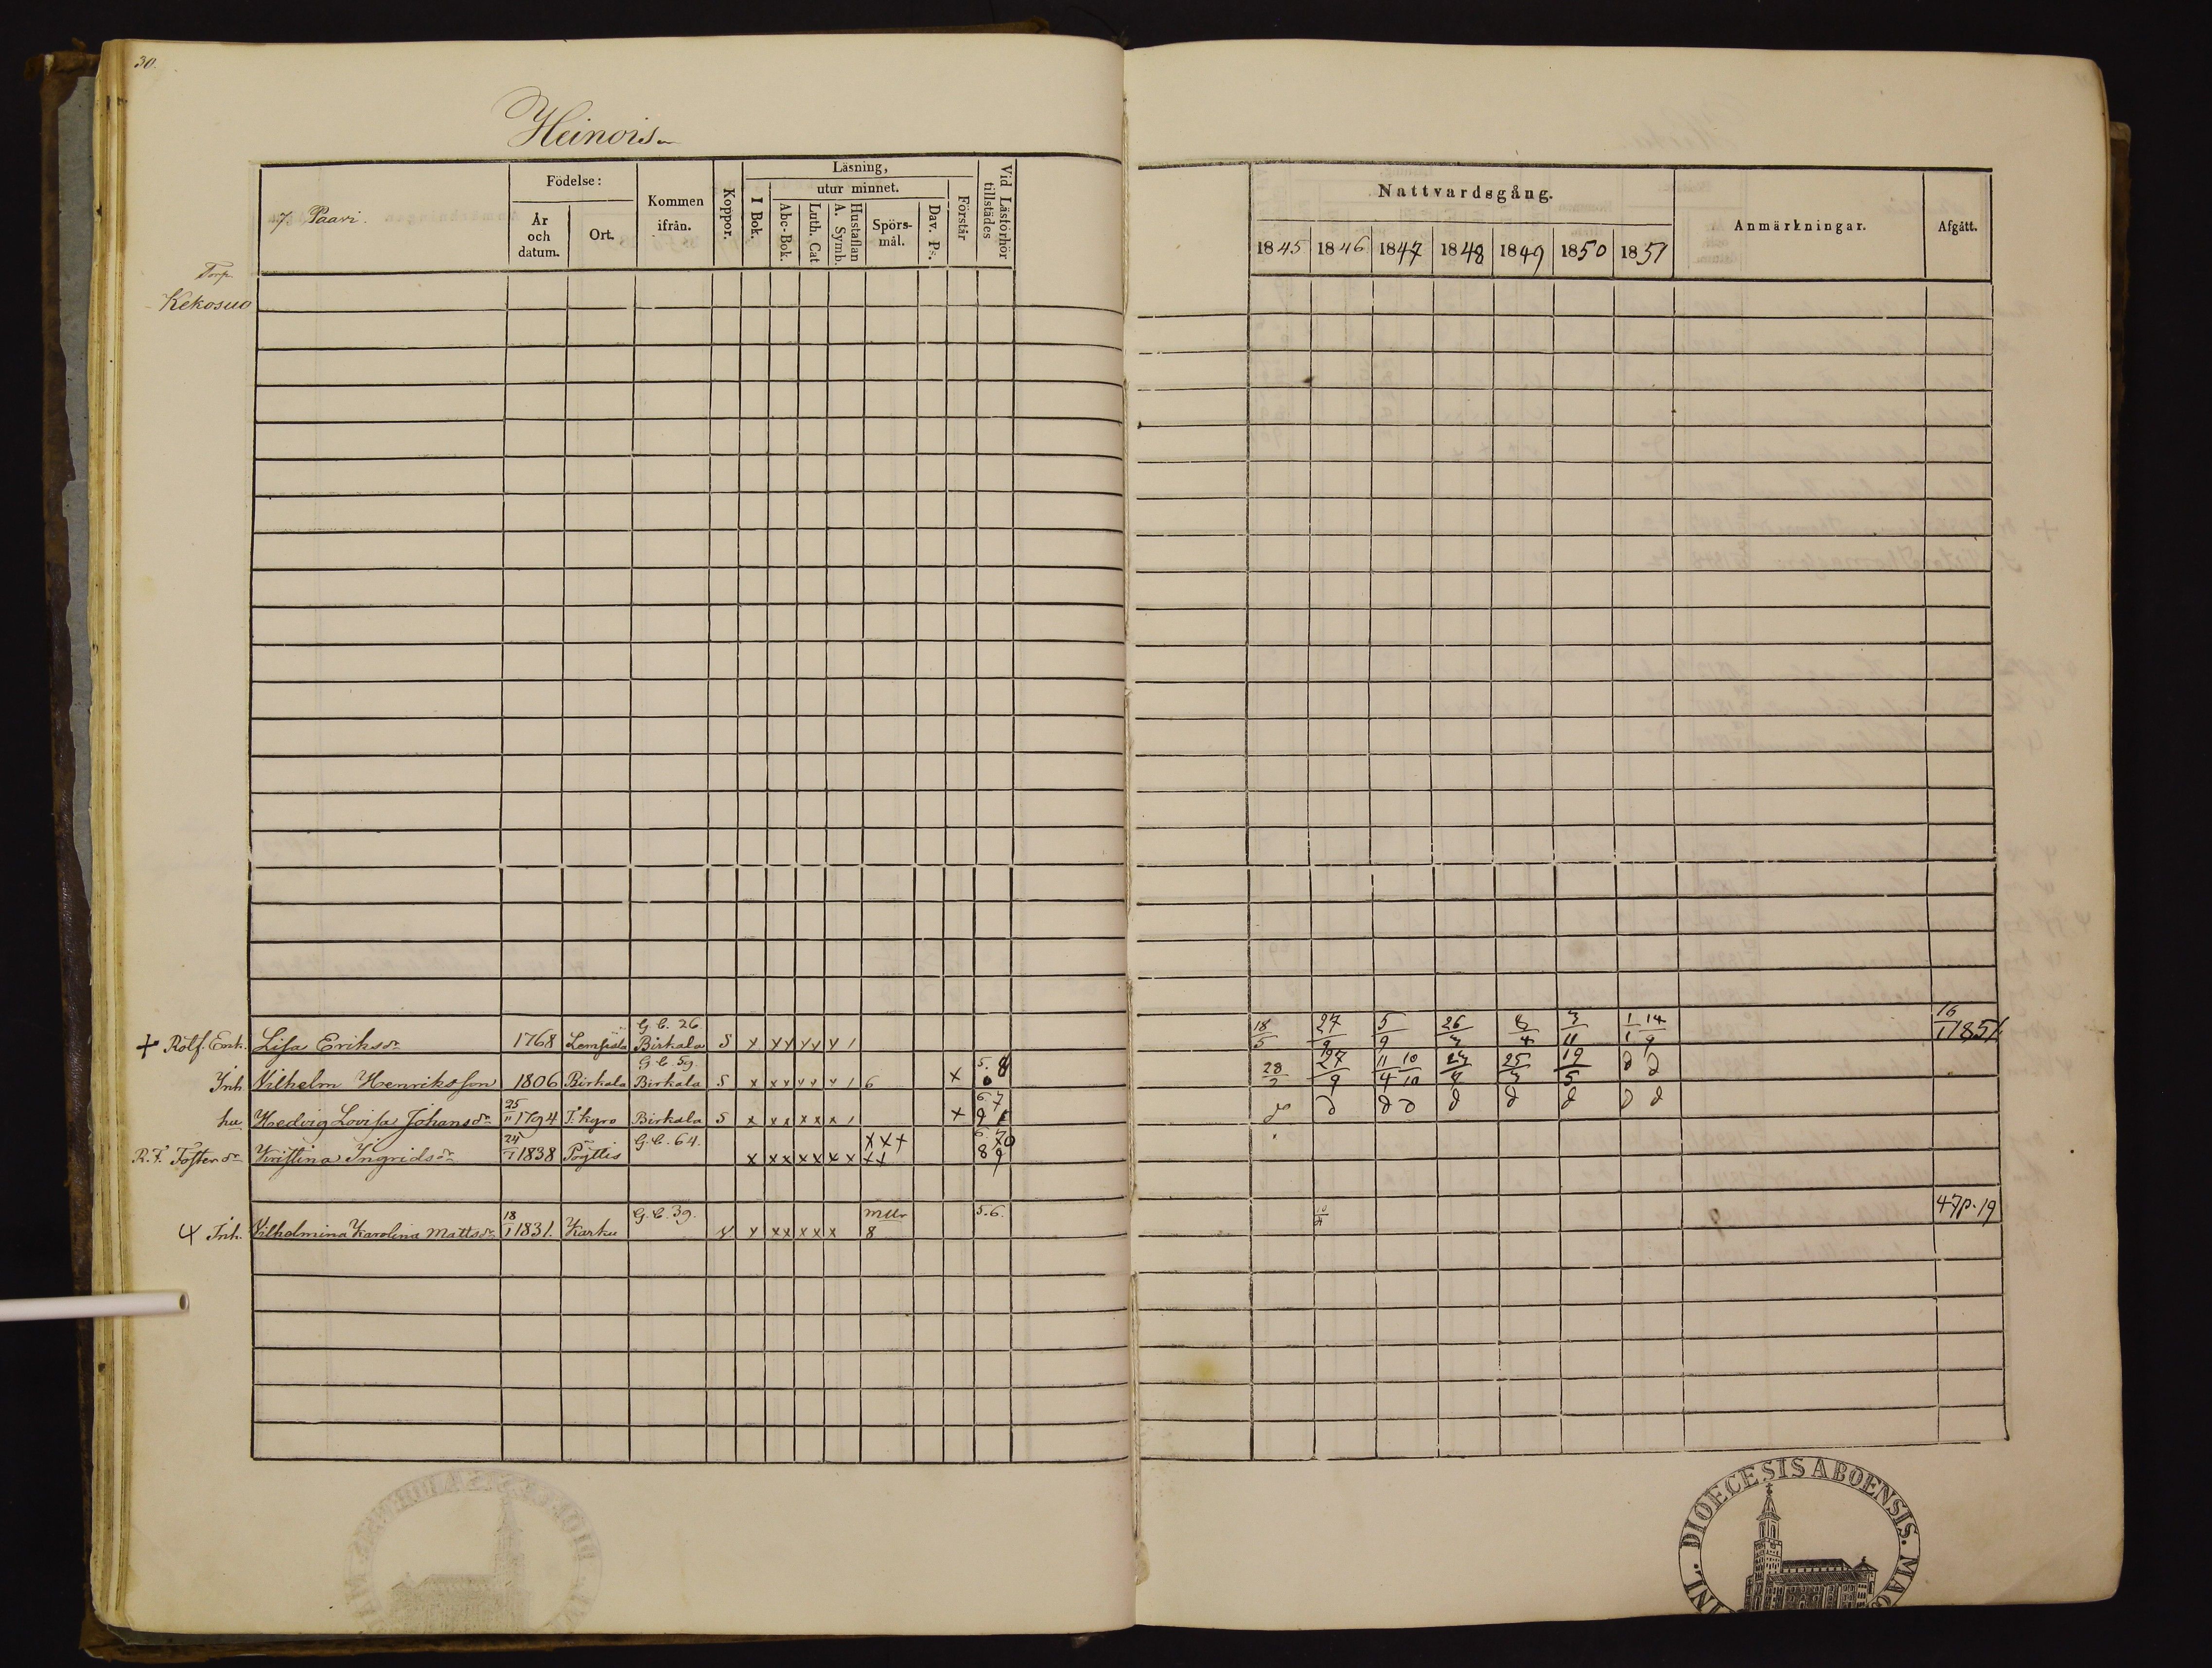 30.
Heinois
7. Paavi.
Födelse:
År och datum.
Ort.
Kommen ifrån.
Koppor.
Läsning,
I Bok.
utur minnet.
Abc-Bok.
Luth. Cat
Hustaflan A. Symb.
Spörs-mål.
Dav. Ps.
Förstår
Vid Läsförhör tillstädes
Nattvardsgång.
1845 1846 1847 1848 1849 1850 1851
Anmärkningar.
Afgått.
Torp
Kekosuo
+ Rotf. Enk. Lisa Eriksdr 1768 Lempäälä G.B. 26. Birkala S x x x x x x / 18/5 27/9 5/9 3/11 1/1 14/9 16/1 1851.
Inh Vilhelm Henriksson 1806 Birkala G.B. 59. Birkala S x x x x x x / 6 x 5. 8 27/9 11/4 10/10 25/3 19/5
hu Hedvig Lovisa Johansdr 25/11 1794 T. kyro Birkala S x x x x x x / x 6 7
R.F. Fosterdr Kristina Ingridsdr 24/1 1838 Pöyttis G.B. 64. x x x x x x x x x + x x 8 9
Inh. Vilhelmina Karolina Mattsdr 18/1 1831. Karku G.B. 39. x x x x x x 8 5.6. 47 p. 19
DIOECESIS ABOENSIS. MAG